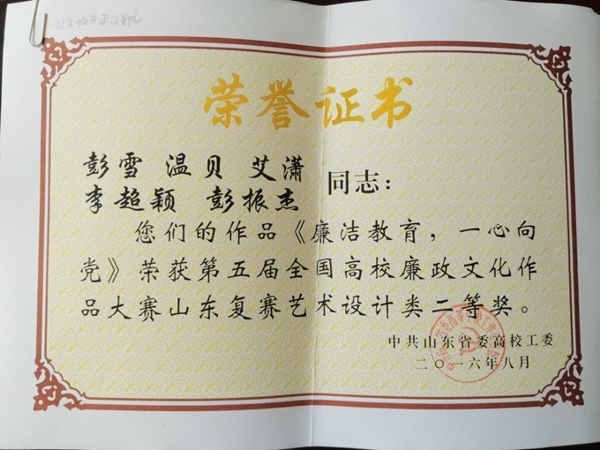 荣誉证书
彭雪 温贝 艾潇
李超颖 彭振杰 同志：
您们的作品《廉洁教育，一心向
党》荣获第五届全国高校廉政文化作
品大赛山东复赛艺术设计类二等奖。
中共山东省委高校工委
二〇一六年八月